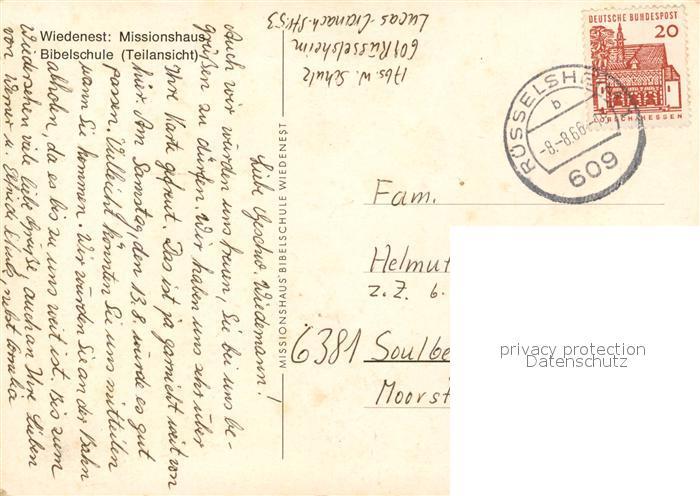 Wiedenest: Missionshaus
Bibelschule (Teilansicht)
Liebe Geschw. Wiedemann!
Auch wir würden uns freuen, Sie bei uns be-
grüßen zu dürfen. Wir haben uns sehr über
Ihre Karte gefreut. Das ist ja garnicht weit von
hier. Am Samstag, den 13.8. würde es gut
passen. Vielleicht könnten Sie uns mitteilen
wann Sie kommen. Wir würden Sie an der Bahn
abholen, da es bis zu uns weit ist. Bis zum
Wiedersehen viele liebe Grüße, auch an Ihre Lieben
von Werner u. Schulz, nebst
MISSIONSHAUS BIBELSCHULE WIEDENEST
Abs. W. Schulz
609 Rüsselsheim
Lucas-Cranach-Str. 53
DEUTSCHE BUNDESPOST
20
LORSCH/HESSEN
RÜSSELSHEIM
b
-8.-8.66-
609
Fam.
Helmut
z. Z. b.
6381 Soulbe
Moorst
privacy protection
Datenschutz